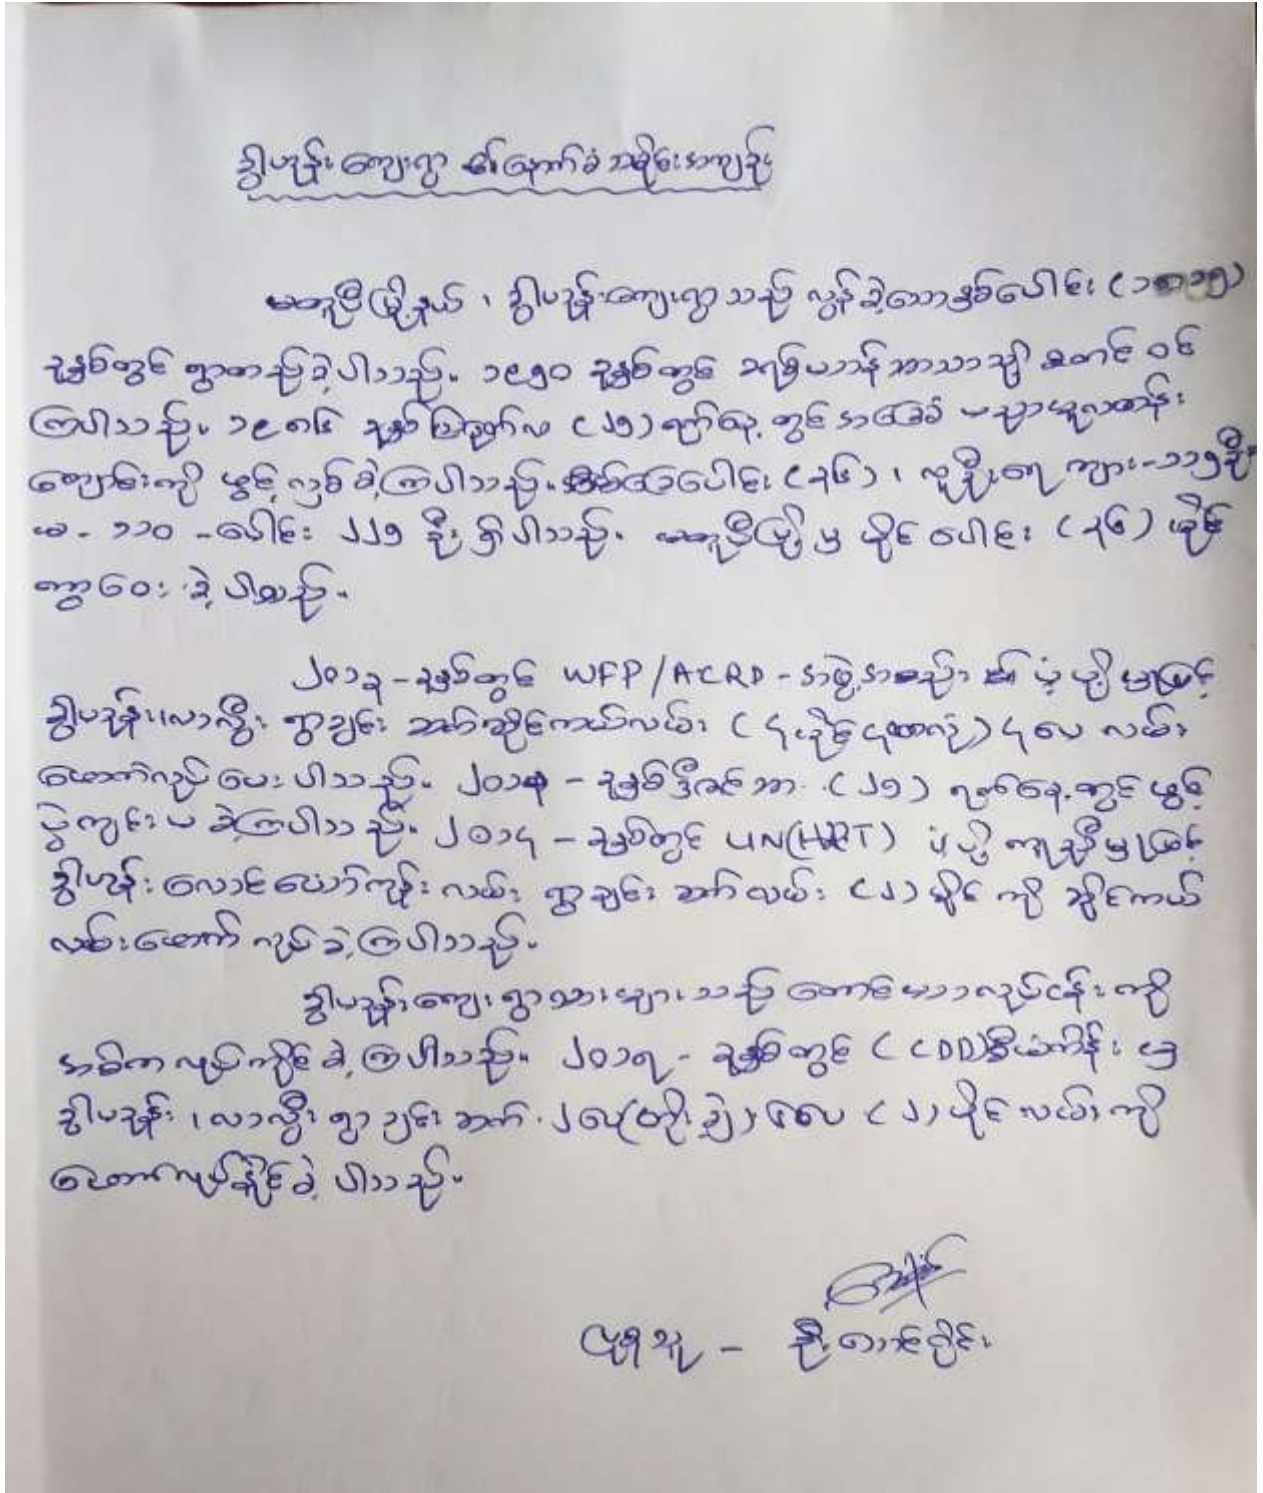 ဒွါဟုန်း ကျေးရွာ ၏နောက်ခံ အမိုင်းအကျဉ်း
မတူပီမြို့နယ် ၊ ဒွါဟုန်းကျေးရွာသည် လွန်ခဲ့သောနှစ်ပေါင်း (
ခုနှစ်တွင် ရွာတည်ခဲ့ပါသည်။ ၁၉၅၀ ခုနှစ်တွင် ခရစ်ယာန်ဘာသာသို့ စတင် ဝင်
ကြပါသည်။ ၁၉၈၆ ခုနှစ် သြဂုတ်လ (၂၅) ရက်နေ့ တွင် အခြေခံ ပညာမူလတန်း
ကျောင်းကို ဖွင့်လှစ် ခဲ့ကြပါသည်။ အိမ်ခြေပေါင်း (၃၆) ၊ လူဦးရေ ကျား-၁၁၅ဦး
မ - ၁၁၀ -ပေါင်း ၂၂၅ ဦး ရှိပါသည်။ မတူပီမြို့မှ မိုင် ပေါင်း (၃၆) မိုင်
ကွာဝေး ခဲ့ပါသည်။
၂၀၁၃-ခုနှစ်တွင် WFP/ACRD - အဖွဲ့အစည်း ၏ ပံ့ပိုးမှုဖြင့်
ဒွါဟုန်း၊လာလွီး ရွာချင်း ဆက်ဆိုင်ကယ်လမ်း (၄မိုင် ၄ဖာလုံ) ၄ပေ လမ်း
ဖောက်လုပ် ပေးပါသည်။ - ခုနှစ်ဒီဇင်ဘာ (၂၅) ရက်နေ့တွင် ဖွင့်
ပွဲကျင်းပ ခဲ့ကြပါသည်။ ၂၀၁၄ - ခုနှစ်တွင် UN(HRT) ပံ့ပိုး ကူညီမှုဖြင့်
ဒွါဟုန်း လောင် လမ်း ရွာချင်း ဆက်လမ်း (၂) မိုင် ကို ဆိုင်ကယ်
လမ်းဖောက် လုပ် ခဲ့ကြပါသည်။
ဒွါဟုန်းကျေးရွာသားများသည် တောင်ယာလုပ်ငန်းကို
အဓိက လုပ်ကိုင် ခဲ့ကြပါသည်။ ၂၀၁၇ - ခုနှစ်တွင် (CDD)စီမံကိန်း မှ
ဒွါဟုန်း ၊လာလွီး ရွာချင်းဆက် ၂ပေ(တိုးချဲ့) ၆ပေ (၂) မိုင် လမ်းကို
ဖောက်လုပ်နိုင်ခဲ့ ပါသည်။
ပြုစုသူ - ဦး